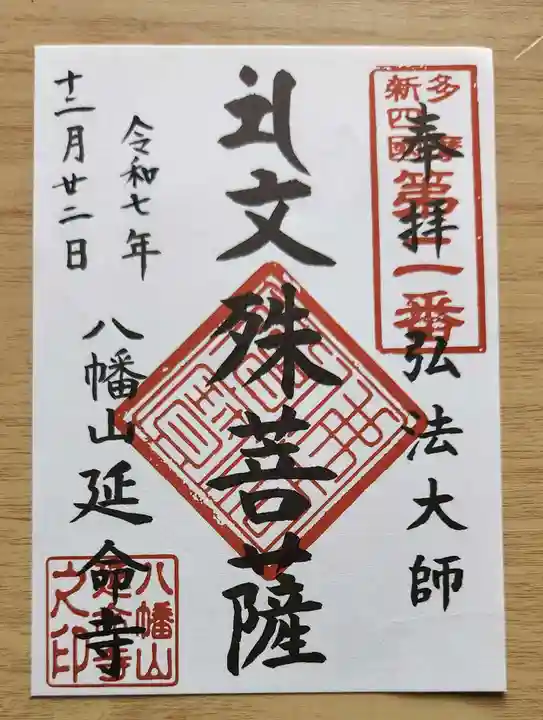 多摩
新四國
第二番
奉拝 弘法大師
礼文殊菩薩
令和七年
十二月廿二日
八幡山延命寺
八幡山
延命寺
之印